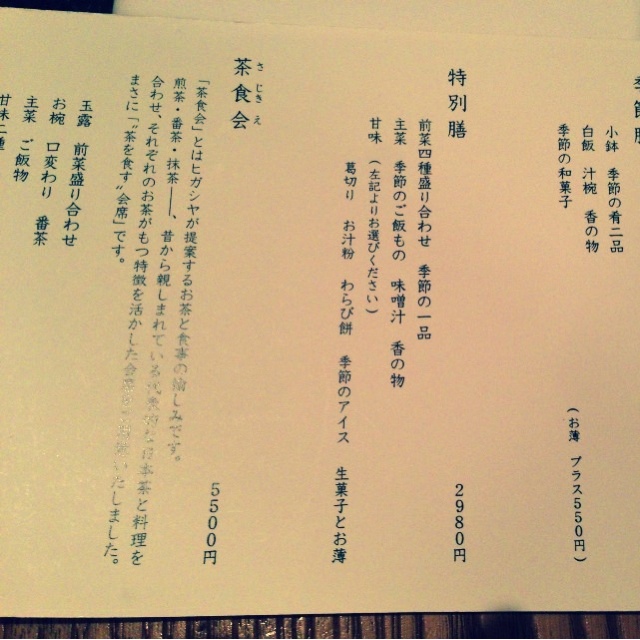 季節膳
小鉢 季節の肴二品
白飯 汁椀 香の物
季節の和菓子
(お薄 プラス550円)
特別膳
2980円
前菜四種盛り合わせ 季節の一品
主菜 季節のご飯もの 味噌汁 香の物
甘味 (左記よりお選びください)
葛切り お汁粉 わらび餅 季節のアイス 生菓子とお薄
茶食会
さじきえ
5500円
「茶食会」とはヒガシヤが提案するお茶と食事の愉しみです。
煎茶・番茶・抹茶――、昔から親しまれている 日本茶と料理を
合わせ、それぞれのお茶がもつ特徴を活かした会席 いたしました。
まさに「“茶を食す”会席」です。
玉露 前菜盛り合わせ
お椀 口変わり 番茶
主菜 ご飯物
甘味二種